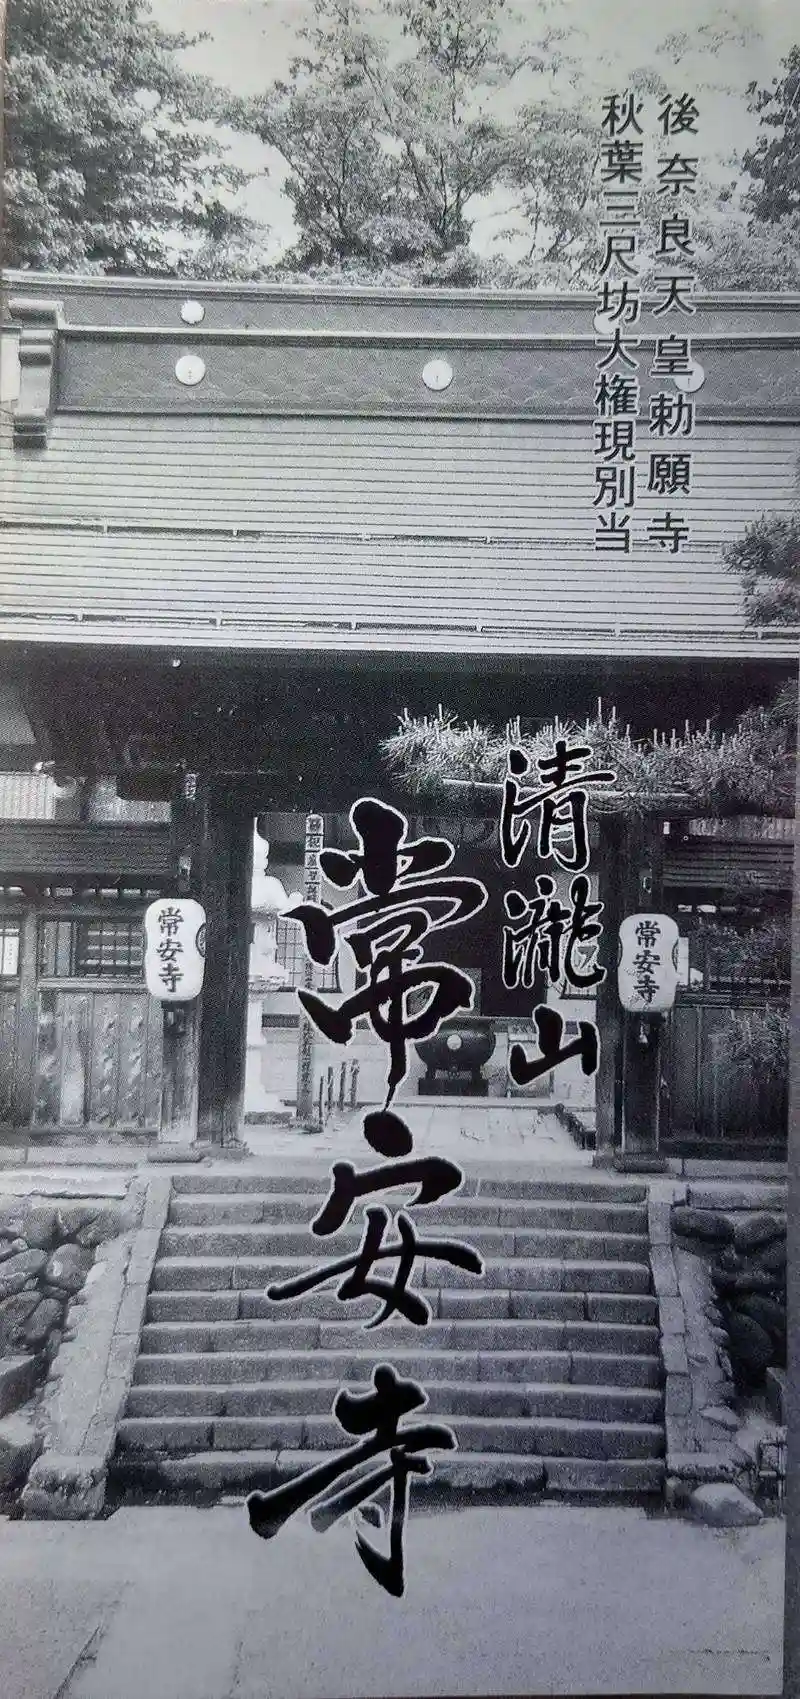 後奈良天皇勅願寺
秋葉三尺坊大権現別当
清瀧山
常安寺
常安寺
常安寺